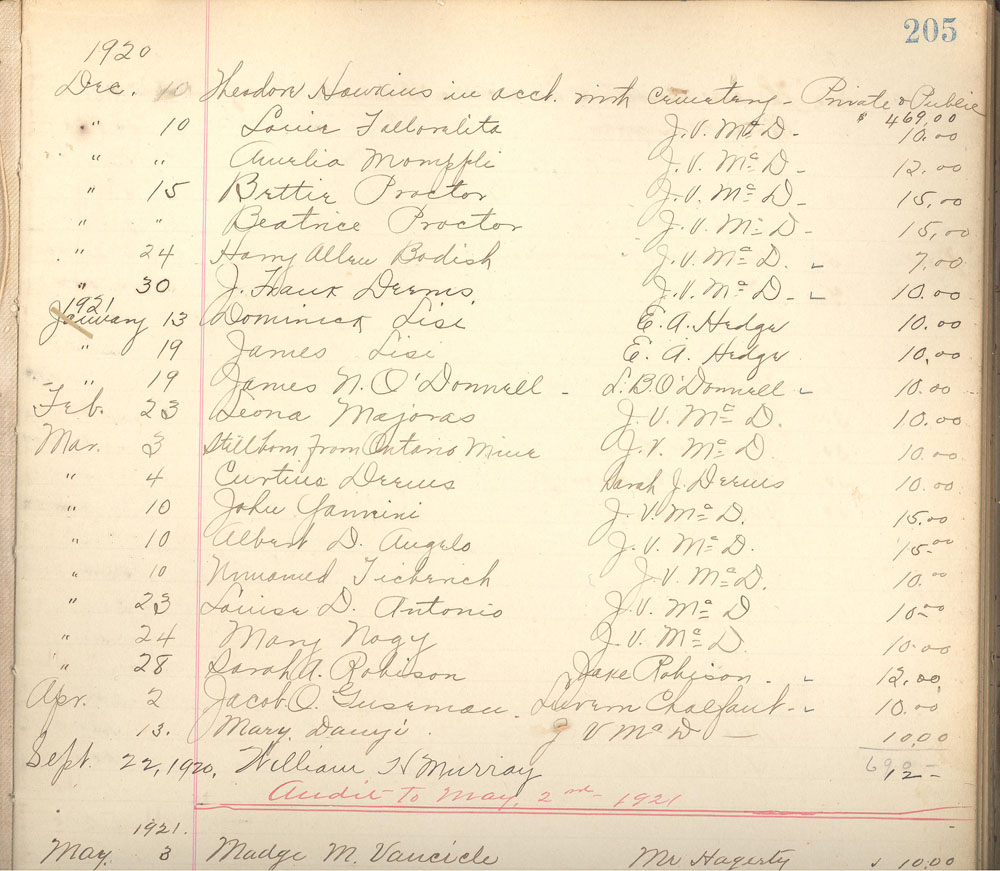 205
1920
Dec. 10 Theodore Hawkins in acct. with Cemetery - Private & Public
$ 469.00
" 10 Louie J. V. McD- 10.00
" " Aurelia J. V. McD- 12.00
" 15 Bettie Proctor J. V. McD- 15.00
" " Beatrice Proctor J. V. McD- 15.00
" 24 Harry Allen Bodish J. V. McD. " 7.00
" 30 J. Frank Deems J. V. McD- " 10.00
1921
January 13 Dominick Lisi E. A. Hedge 10.00
" 19 James Lisi E. A. Hedge 10.00
" 19 James N. O'Donnell - L. B. O'Donnell " 10.00
Feb. 23 Leona Majoras J. V. McD. 10.00
Mar. 3 Stillborn from Ontario Mine J. V. McD. 10.00
" 4 Curtius Deems Sarah J. Deems 10.00
" 10 John J. V. McD. 15.00
" 10 Albert D. Angelo J. V. McD. 15.00
" 10 Unnamed J. V. McD. 10.00
" 23 Louise D. Antonio J. V. McD 10.00
" 24 Mary Nagy J. V. McD. 10.00
" 28 Sarah A. Robison Jake Robison. " 12.00
Apr. 2 Jacob O. Guseman. Luvern Chalfant - " 10.00
13. Mary J V McD - 10.00
690 -
Sept. 22, 1920, William H Murray 12 -
Audit to May, 2nd 1921
1921.
May. 3 Madge M. Vancicle Mr Hagerty $ 10.00